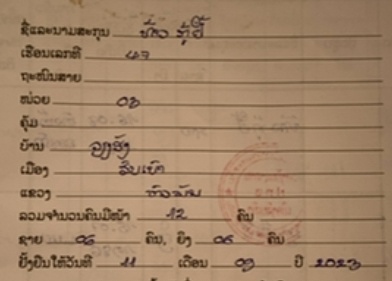 ຊື່ແລະນາມສະກຸນ ທ້າວ ກູ້ຢີ້
ເຮືອນເລກທີ 47
ຖະໜົນສາຍ
ໜ່ວຍ 08
ຄຸ້ມ
ບ້ານ
ເມືອງ ສົບເບົາ
ແຂວງ ຫົວພັນ
ລວມຈຳນວນຄົນມີໜ້າ 12 ຄົນ
ຊາຍ 06 ຄົນ, ຍິງ 06 ຄົນ
ຢັ້ງຢືນໃຫ້ວັນທີ 11 ເດືອນ 09 ປີ 2023